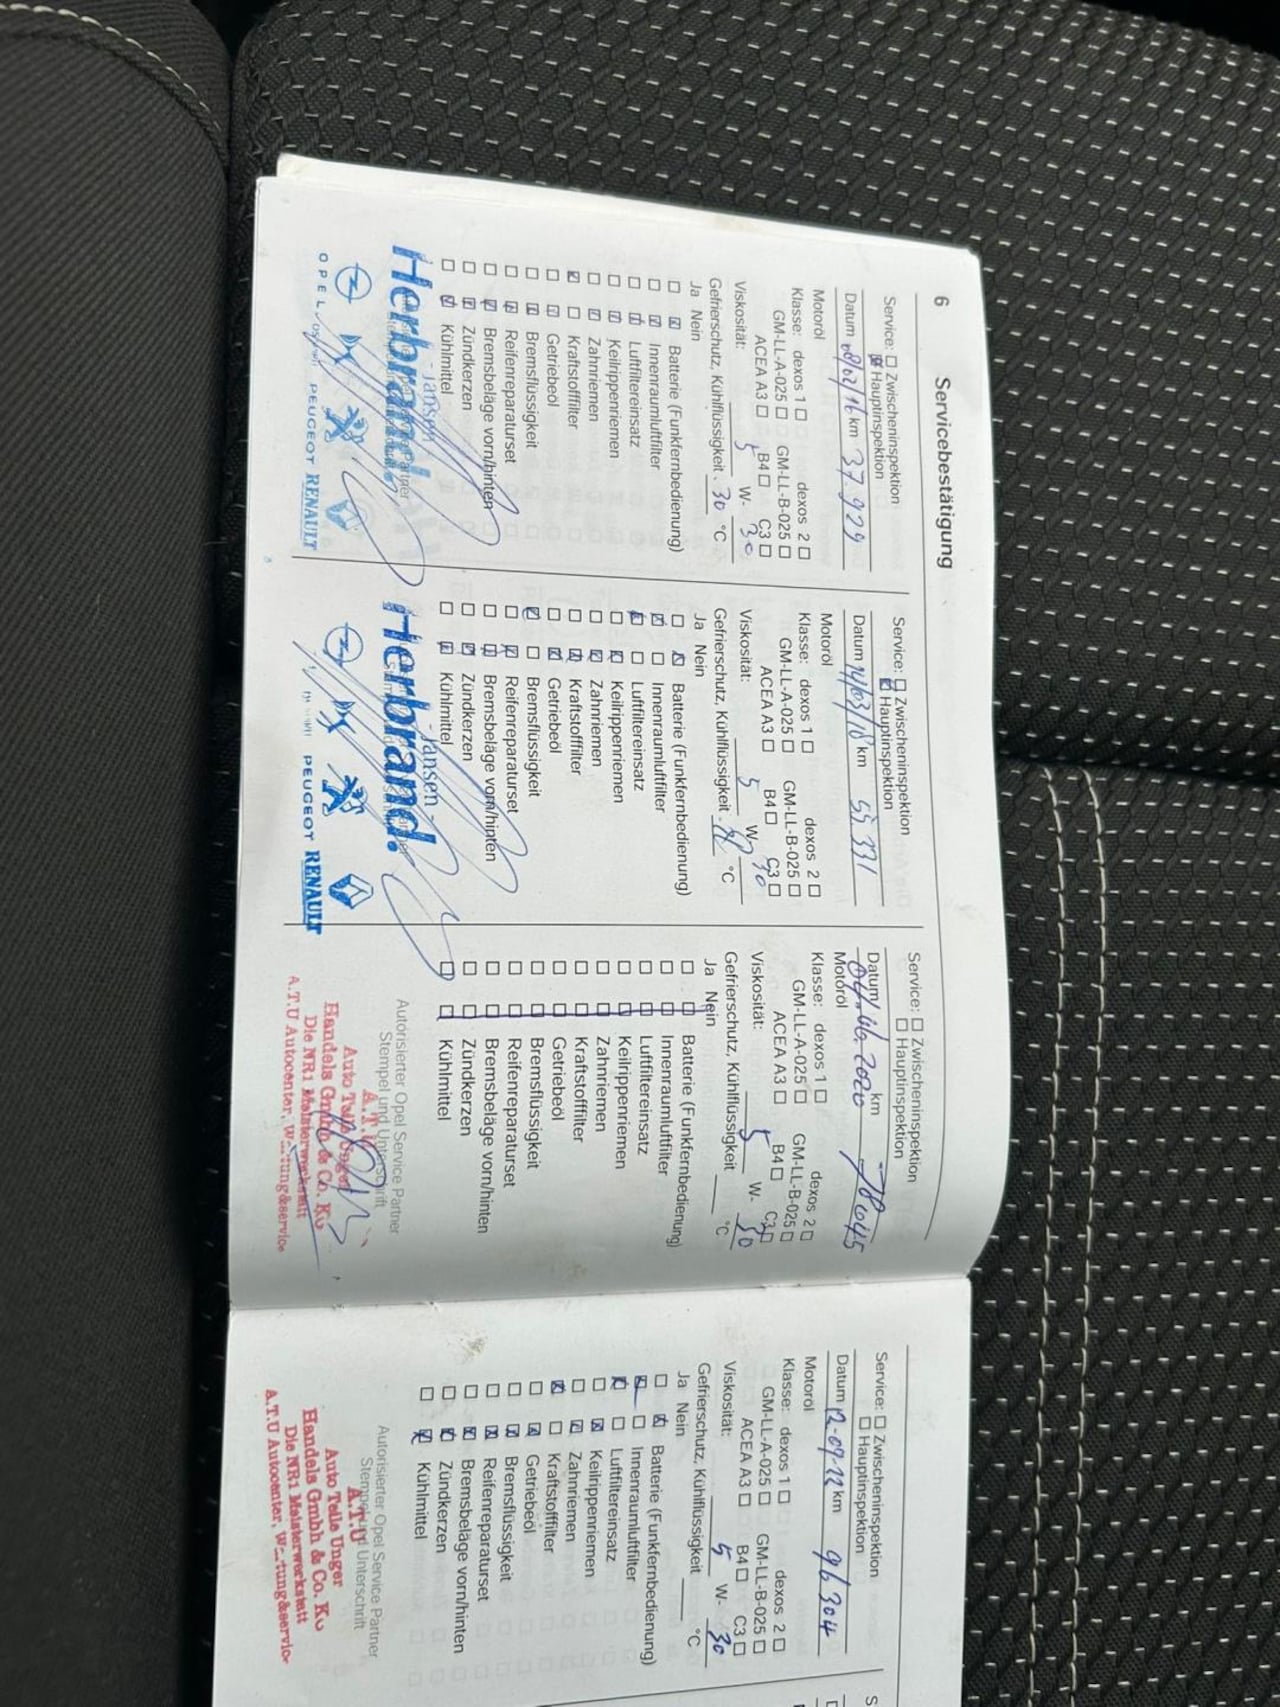 6 Servicebestätigung
Service: □ Zwischeninspektion
☒ Hauptinspektion
Datum 02/16 km 37.929
Motoröl
Klasse: dexos 1 □ dexos 2 □
GM-LL-A-025 □ GM-LL-B-025 □
ACEA A3 □ B4 □ C3 □
Viskosität: 5 W- 30
Gefrierschutz, Kühlflüssigkeit - 30 °C
Ja Nein
□ ☒ Batterie (Funkfernbedienung)
□ ☒ Innenraumluftfilter
□ ☒ Luftfiltereinsatz
□ ☒ Keilrippenriemen
□ ☒ Zahnriemen
☒ □ Kraftstofffilter
□ ☒ Getriebeöl
□ ☒ Bremsflüssigkeit
□ ☒ Reifenreparaturset
□ ☒ Bremsbeläge vorn/hinten
□ ☒ Zündkerzen
□ ☒ Kühlmittel
- Jansen
Herbrand.
OPEL PEUGEOT RENAULT
Service: □ Zwischeninspektion
☒ Hauptinspektion
Datum 14/03/18 km 55.331
Motoröl
Klasse: dexos 1 □ dexos 2 □
GM-LL-A-025 □ GM-LL-B-025 □
ACEA A3 □ B4 □ C3 □
Viskosität: 5 W- 30
Gefrierschutz, Kühlflüssigkeit - °C
Ja Nein
□ ☒ Batterie (Funkfernbedienung)
☒ □ Innenraumluftfilter
☒ □ Luftfiltereinsatz
□ ☒ Keilripenriemen
□ ☒ Zahnriemen
□ ☒ Kraftstofffilter
□ ☒ Getriebeöl
☒ □ Bremsflüssigkeit
□ ☒ Reifenreparaturset
□ ☒ Bremsbeläge vorn/hinten
□ ☒ Zündkerzen
□ ☒ Kühlmittel
- Jansen -
Herbrand.
PEUGEOT RENAULT
Service: □ Zwischeninspektion
□ Hauptinspektion
Datum 04.06.2020 km 78045
Motoröl
Klasse: dexos 1 □ dexos 2 □
GM-LL-A-025 □ GM-LL-B-025 □
ACEA A3 □ B4 □ C3 □
Viskosität: 5 W- 30
Gefrierschutz, Kühlflüssigkeit °C
Ja Nein
□ □ Batterie (Funkfernbedienung)
□ □ Innenraumluftfilter
□ □ Luftfiltereinsatz
□ □ Keilrippenriemen
□ □ Zahnriemen
□ □ Kraftstofffilter
□ □ Getriebeöl
□ □ Bremsflüssigkeit
□ □ Reifenreparaturset
□ □ Bremsbeläge vorn/hinten
□ □ Zündkerzen
□ □ Kühlmittel
Autorisierter Opel Service Partner
Stempel und Unterschrift
A.T.U
Auto Teile Unger
Handels Gmbh & Co. KG
Die NR1 Meisterwerkstatt
A.T.U Autocenter, Wartung&service
Service: □ Zwischeninspektion
□ Hauptinspektion
Datum 12-09-22 km 96304
Motoröl
Klasse: dexos 1 □ dexos 2 □
GM-LL-A-025 □ GM-LL-B-025 □
ACEA A3 □ B4 □ C3 □
Viskosität: 5 W- 30
Gefrierschutz, Kühlflüssigkeit °C
Ja Nein
□ ☒ Batterie (Funkfernbedienung)
☒ □ Innenraumluftfilter
☒ □ Luftfiltereinsatz
□ ☒ Keilrippenriemen
□ ☒ Zahnriemen
☒ □ Kraftstofffilter
□ ☒ Getriebeöl
□ ☒ Bremsflüssigkeit
□ ☒ Reifenreparaturset
□ ☒ Bremsbeläge vorn/hinten
□ ☒ Zündkerzen
□ ☒ Kühlmittel
Autorisierter Opel Service Partner
Stempel und Unterschrift
A.T.U
Auto Teile Unger
Handels Gmbh & Co. KG
Die NR1 Meisterwerkstatt
A.T.U Autocenter, Wartung&service
S